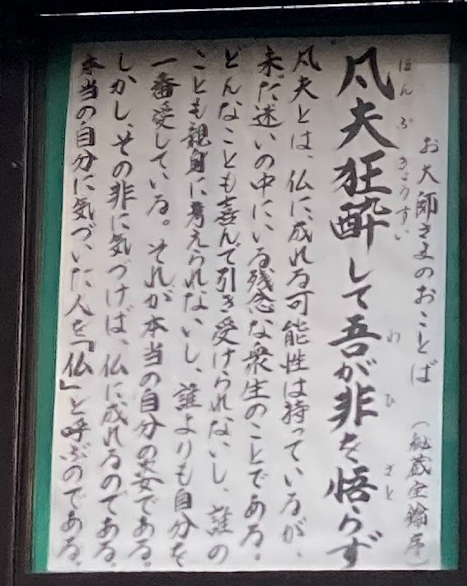 お大師さまのおことば (秘蔵宝鑰序)
凡夫狂酔して吾が非を悟らず
ほんぷ きょうすい わ ひ さと
凡夫とは、仏に成れる可能性は持っているが、
未だ迷いの中にいる残念な衆生のことである。
どんなことも喜んで引き受けられないし、誰の
ことも親身に考えられないし、誰よりも自分を
一番愛している。それが本当の自分の姿である。
しかし、その非に気づけば、仏に成れるのである。
本当の自分に気づいた人を「仏」と呼ぶのである。